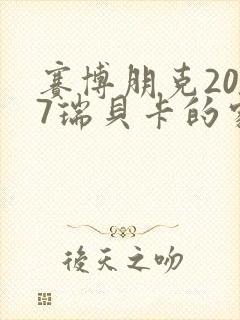 赛博朋克20
7瑞贝卡的
后天之吻